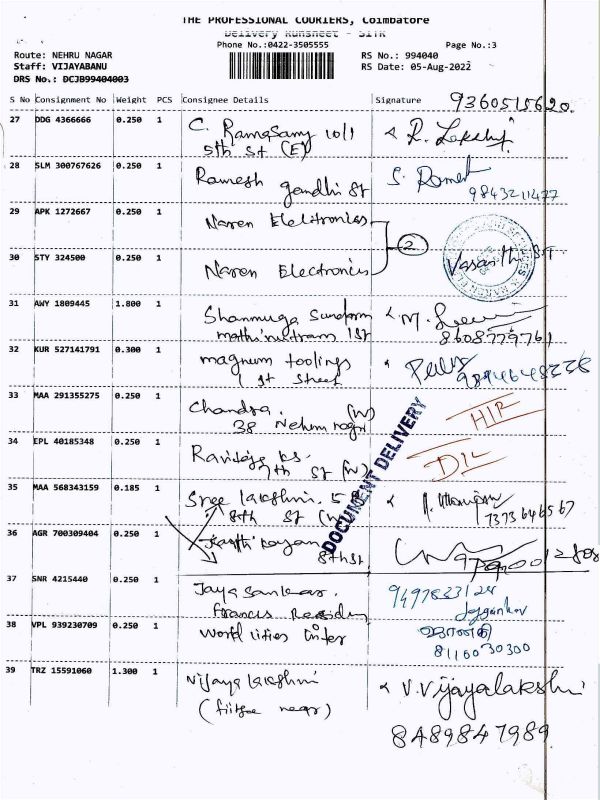 THE PROFESSIONAL COURIERS, Coimbatore
Delivery Runsheet - SITR
Phone No.:0422-3505555 Page No.:3
Route: NEHRU NAGAR RS No.: 994040
Staff: VIJAYABANU RS Date: 05-Aug-2022
DRS No.: DCJB99404003
S No Consignment No Weight PCS Consignee Details Signature 9360515620
27 DDG 4366666 0.250 1 C. Ramasamy 10/1
5th St (E)
28 SLM 300767626 0.250 1 Ramesh Gandhi St S. Ramesh
9843211477
29 APK 1272667 0.250 1 Naren Electronics
2
30 STY 324500 0.250 1 Naren Electronics Vasanthi
31 AWY 1809445 1.800 1 Shanmuga Sundaram M.
1 St 8608779761
32 KUR 527141791 0.300 1 magnum toolings
1 st Street
33 MAA 291355275 0.250 1 Chandra. (W) HIR
38 Nehru nagar
34 EPL 40185348 0.250 1 7th St (W) DIL
DOCUMENT DELIVERY
35 MAA 568343159 0.185 1 Sree Lakshmi. 58
8th St (W) 7373646567
36 AGR 700309404 0.250 1
8th St
37 SNR 4215440 0.250 1 Jaya Sankar.
Francis
38 VPL 939230709 0.250 1 World
8110030300
39 TRZ 15591060 1.300 1 Vijaya Lakshmi V. Vijayalakshmi
8489847989